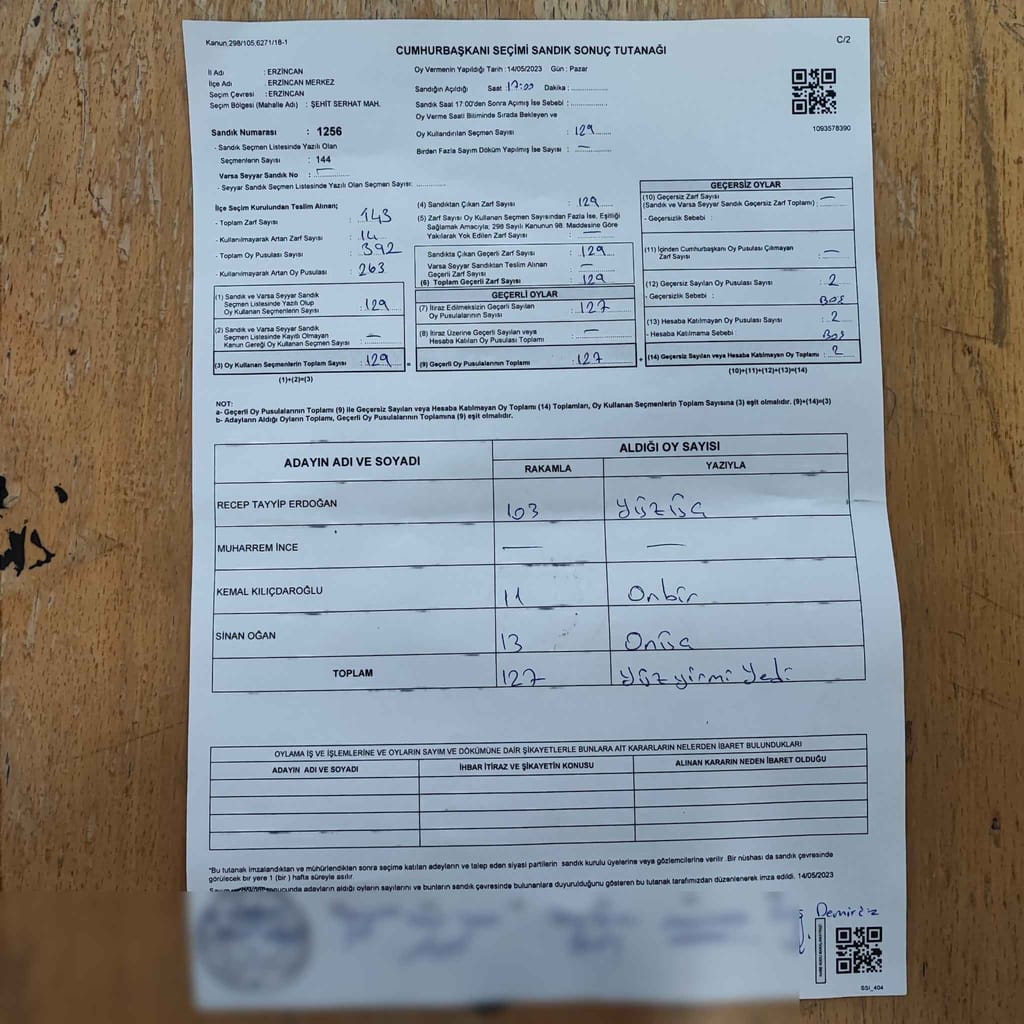 Kanun,298/105,6271/18-1
C/2
CUMHURBAŞKANI SEÇİMİ SANDIK SONUÇ TUTANAĞI
İl Adı : ERZİNCAN
İlçe Adı : ERZİNCAN MERKEZ
Seçim Çevresi : ERZİNCAN
Seçim Bölgesi (Mahalle Adı) : ŞEHİT SERHAT MAH.
Oy Vermenin Yapıldığı Tarih :14/05/2023 Gün : Pazar
Sandığın Açıldığı Saat 17:00 Dakika :
Sandık Saat 17.00'den Sonra Açılmış İse Sebebi :
Oy Verme Saati Bitiminde Sırada Bekleyen ve
Oy Kullandırılan Seçmen Sayısı : 129
Birden Fazla Sayım Döküm Yapılmış İse Sayısı : —
1093578390
Sandık Numarası : 1256
- Sandık Seçmen Listesinde Yazılı Olan
Seçmenlerin Sayısı : 144
Varsa Seyyar Sandık No : —
- Seyyar Sandık Listesinde Yazılı Olan Seçmen Sayısı:
İlçe Seçim Kurulundan Teslim Alınan;
- Toplam Zarf Sayısı : 143
- Kullanılmayarak Artan Zarf Sayısı : 14
- Toplam Oy Pusulası Sayısı : 392
- Kullanılmayarak Artan Oy Pusulası : 263
(1) Sandık ve Varsa Seyyar Sandık
Seçmen Listesinde Yazılı Olup
Oy Kullanan Seçmenlerin Sayısı : 129
(2) Sandık ve Varsa Seyyar Sandık
Seçmen Listesinde Kayıtlı Olmayan
Kanun Gereği Oy Kullanan Seçmen Sayısı : —
(3) Oy Kullanan Seçmenlerin Toplam Sayısı : 129 =
(1)+(2)=(3)
(4) Sandıktan Çıkan Zarf Sayısı : 129
(5) Zarf Sayısı Oy Kullanan Seçmen Sayısından Fazla İse, Eşitliği
Sağlamak Amacıyla; 298 Sayılı Kanunun 98. Maddesine Göre
Yakılarak Yok Edilen Zarf Sayısı : —
Sandıkta Çıkan Geçerli Zarf Sayısı : 129
Varsa Seyyar Sandıktan Teslim Alınan
Geçerli Zarf Sayısı : —
(6) Toplam Geçerli Zarf Sayısı : 129
GEÇERLİ OYLAR
(7) İtiraz Edilmeksizin Geçerli Sayılan
Oy Pusulalarının Sayısı : 127
(8) İtiraz Üzerine Geçerli Sayılan veya
Hesaba Katılan Oy Pusulası Toplamı : —
(9) Geçerli Oy Pusulalarının Toplamı : 127 +
GEÇERSİZ OYLAR
(10) Geçersiz Zarf Sayısı
(Sandık ve Varsa Seyyar Sandık Geçersiz Zarf Toplamı) : —
- Geçersizlik Sebebi :
(11) İçinden Cumhurbaşkanı Oy Pusulası Çıkmayan
Zarf Sayısı : —
(12) Geçersiz Sayılan Oy Pusulası Sayısı : 2
- Geçersizlik Sebebi : BOŞ
(13) Hesaba Katılmayan Oy Pusulası Sayısı : 2
- Hesaba Katılmama Sebebi : BOŞ
(14) Geçersiz Sayılan veya Hesaba Katılmayan Oy Toplamı : 2
(10)+(11)+(12)+(13)=(14)
NOT:
a- Geçerli Oy Pusulalarının Toplamı (9) ile Geçersiz Sayılan veya Hesaba Katılmayan Oy Toplamı (14) Toplamları, Oy Kullanan Seçmenlerin Toplam Sayısına (3) eşit olmalıdır. (9)+(14)=(3)
b- Adayların Aldığı Oyların Toplamı, Geçerli Oy Pusulalarının Toplamına (9) eşit olmalıdır.
ADAYIN ADI VE SOYADI
ALDIĞI OY SAYISI
RAKAMLA YAZIYLA
RECEP TAYYİP ERDOĞAN 103 Yüzüç
MUHARREM İNCE — —
KEMAL KILIÇDAROĞLU 11 Onbir
SİNAN OĞAN 13 Onüç
TOPLAM 127 Yüz yirmi Yedi
OYLAMA İŞ VE İŞLEMLERİNE VE OYLARIN SAYIM VE DÖKÜMÜNE DAİR ŞİKAYETLERLE BUNLARA AİT KARARLARIN NELERDEN İBARET BULUNDUKLARI
ADAYIN ADI VE SOYADI İHBAR İTİRAZ VE ŞİKAYETİN KONUSU ALINAN KARARIN NEDEN İBARET OLDUĞU
*Bu tutanak imzalandıktan ve mühürlendikten sonra seçime katılan adayların ve talep eden siyasi partilerin sandık kurulu üyelerine veya gözlemcilerine verilir. Bir nüshası da sandık çevresinde
görülecek bir yere 1 (bir) hafta süreyle asılır.
sonucunda adayların aldığı oyların sayılarını ve bunların sandık çevresinde bulunanlara duyurulduğunu gösteren bu tutanak tarafımızdan düzenlenerek imza edildi. 14/05/2023
Demiröz
SSI_404